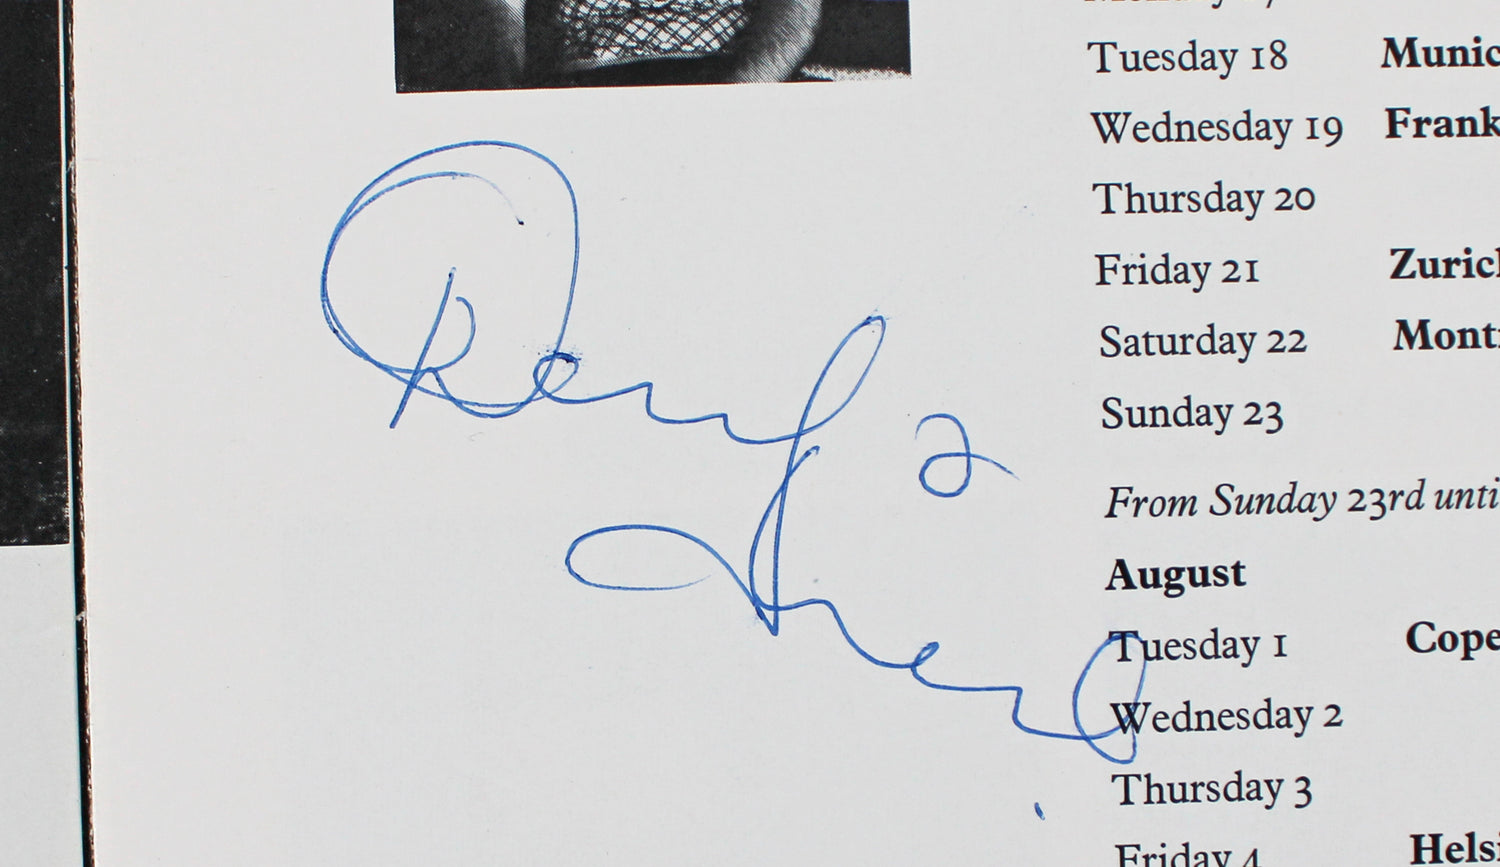 Tuesday 18 Munic
Wednesday 19 Frank
Thursday 20
Friday 21 Zuric
Saturday 22 Mont
Sunday 23
From Sunday 23rd unti
August
Tuesday 1 Cope
Wednesday 2
Thursday 3
Friday 4 Hels